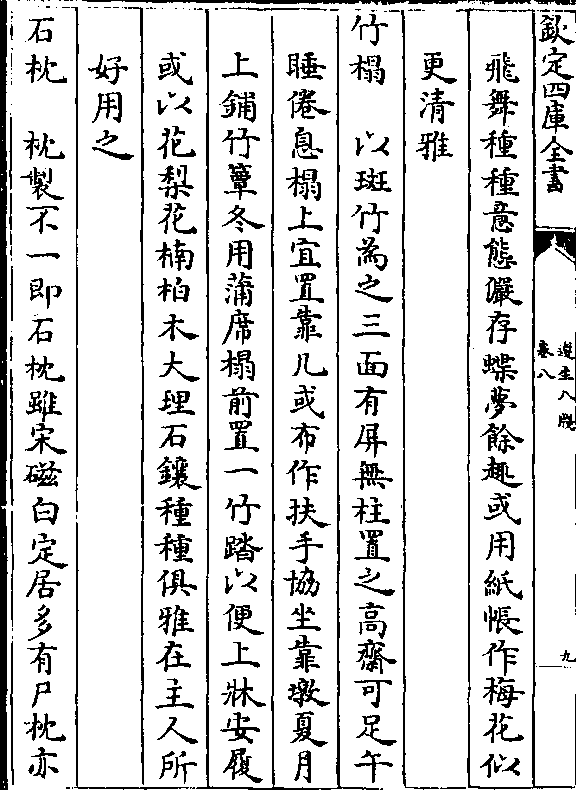 欽定四庫全書
遵生八牋
卷八
九
飛舞種種意態儼存蝶夢餘趣或用紙帳作梅花似
更清雅
竹榻　以斑竹為之三面有屏無柱置之高齋可足午
睡倦息榻上宜置靠几或布作扶手協坐靠墩夏月
上鋪竹簟冬用蒲席榻前置一竹踏以便上牀安履
或以花梨花楠柏木大理石鑲種種俱雅在主人所
好用之
石枕　枕製不一即石枕雖宋磁白定居多有尸枕亦